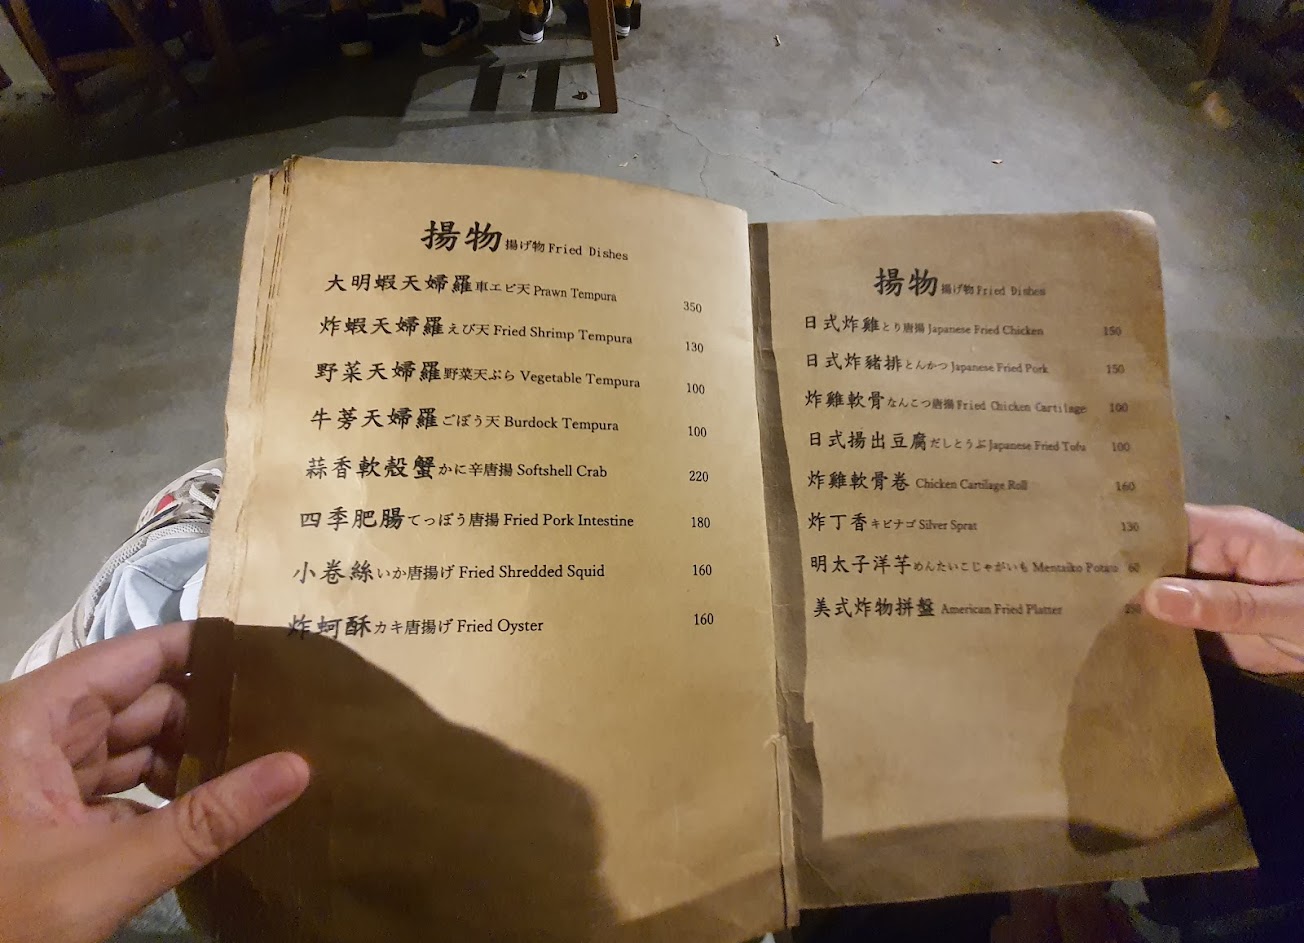 揚物 揚げ物 Fried Dishes
大明蝦天婦羅 車エビ天 Prawn Tempura 350
炸蝦天婦羅 えび天 Fried Shrimp Tempura 130
野菜天婦羅 野菜天ぷら Vegetable Tempura 100
牛蒡天婦羅 ごぼう天 Burdock Tempura 100
蒜香軟殼蟹 かに辛唐揚 Softshell Crab 220
四季肥腸 てっぽう唐揚 Fried Pork Intestine 180
小卷絲 いか唐揚げ Fried Shredded Squid 160
炸蚵酥 カキ唐揚げ Fried Oyster 160
揚物 揚げ物 Fried Dishes
日式炸雞 とり唐揚 Japanese Fried Chicken 150
日式炸豬排 とんかつ Japanese Fried Pork 150
炸雞軟骨 なんこつ唐揚 Fried Chicken Cartilage 100
日式揚出豆腐 だしとうふ Japanese Fried Tofu 100
炸雞軟骨卷 Chicken Cartilage Roll 160
炸丁香 キビナゴ Silver Sprat 130
明太子洋芋 めんたいこじゃがいも Mentaiko Potato 60
美式炸物拼盤 American Fried Platter